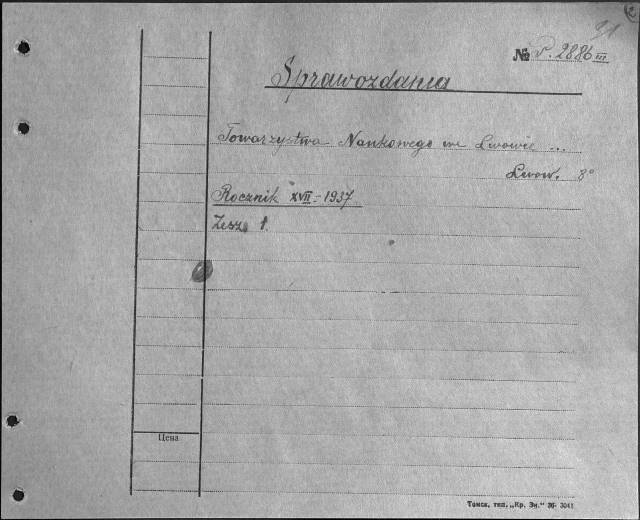 21
№ P. 2886 III
Sprawozdania
Towarzystwa Naukowego we Lwowie ...
Lwow. 8°
Rocznik XVII - 1937
Zesz. 1.
Цена
Томск, тип. „Кр. Зн.“ 36- 3041